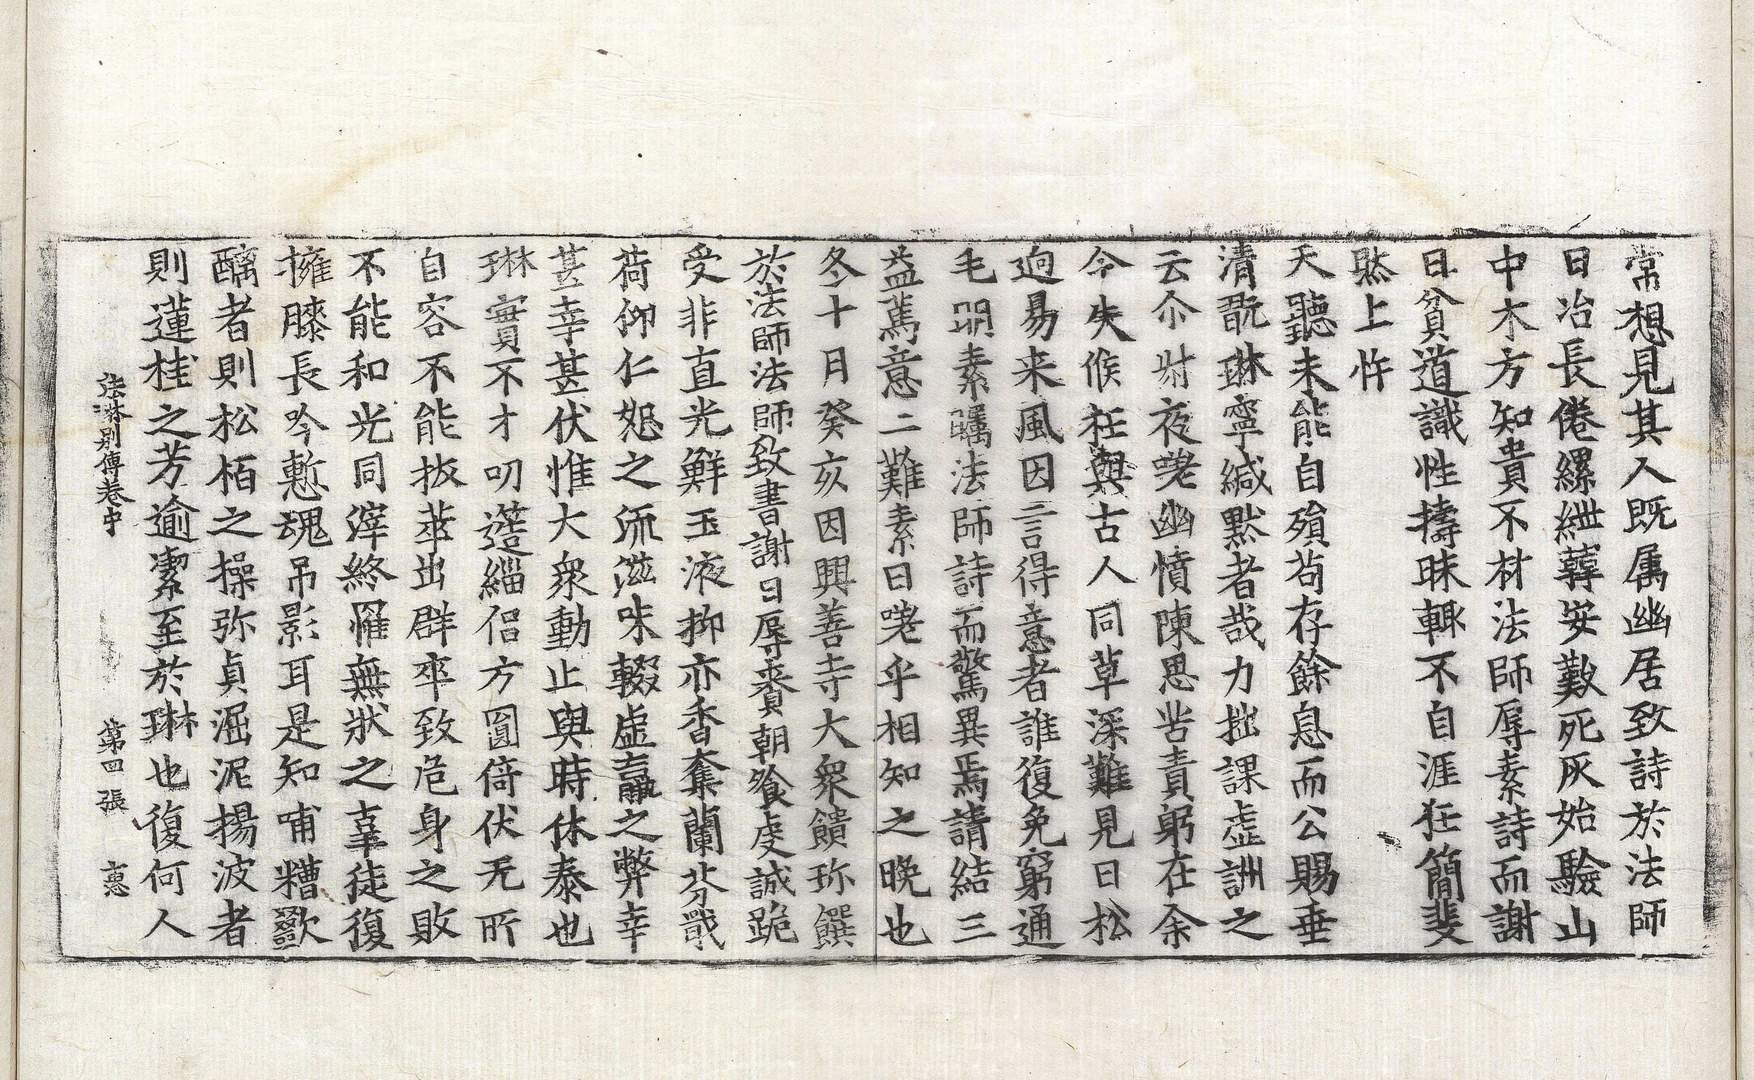 常想見其人既属幽居致詩於法師
曰冶長倦縲紲韓安歎死灰始驗山
中木方知貴不材法師辱素詩而謝
曰貧道識性擣昧輒不自涯狂簡斐
然上忤
天聽未能自殞苟存餘息而公賜垂
清翫琳寧緘黙者哉力拙課虛詶之
云尒時夜嗟幽憤陳思苦責躬在余
今失候枉與古人同草深難見日松
逈易来風因言得意者誰復免窮通
毛明素矚法師詩而驚異焉請結三
益篤意二難素曰嗟乎相知之晚也
冬十月癸亥因興善寺大衆饋珎饌
於法師法師致書謝曰辱賚朝飡虔誠跪
受非直光鮮玉液抑亦香奪蘭芬戢
荷仰仁恕之流滋味輟虛羸之弊幸
甚幸甚伏惟大衆動止與時休泰也
琳實不才叨簉緇侣方圓倚伏无所
自容不能抜萃出群卒致危身之敗
不能和光同滓終罹無狀之辜徒復
擁膝長吟慙魂吊影耳是知哺糟歠
醨者則松栢之操弥貞淈泥揚波者
則蓮桂之芳逾潔至於琳也復何人
法琳别傳卷中　第四張　惠